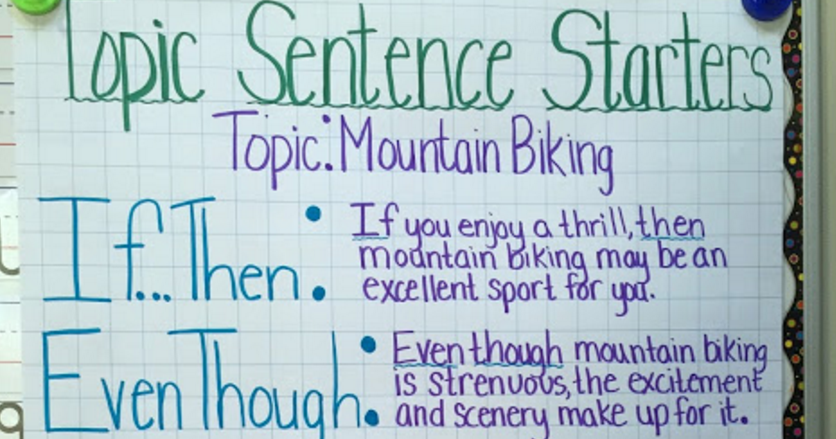 Topic Sentence Starters
Topic: Mountain Biking
If...Then:
If you enjoy a thrill, then
mountain biking may be an
excellent sport for you.
Even Though:
Even though mountain biking
is strenuous, the excitement
and scenery make up for it.